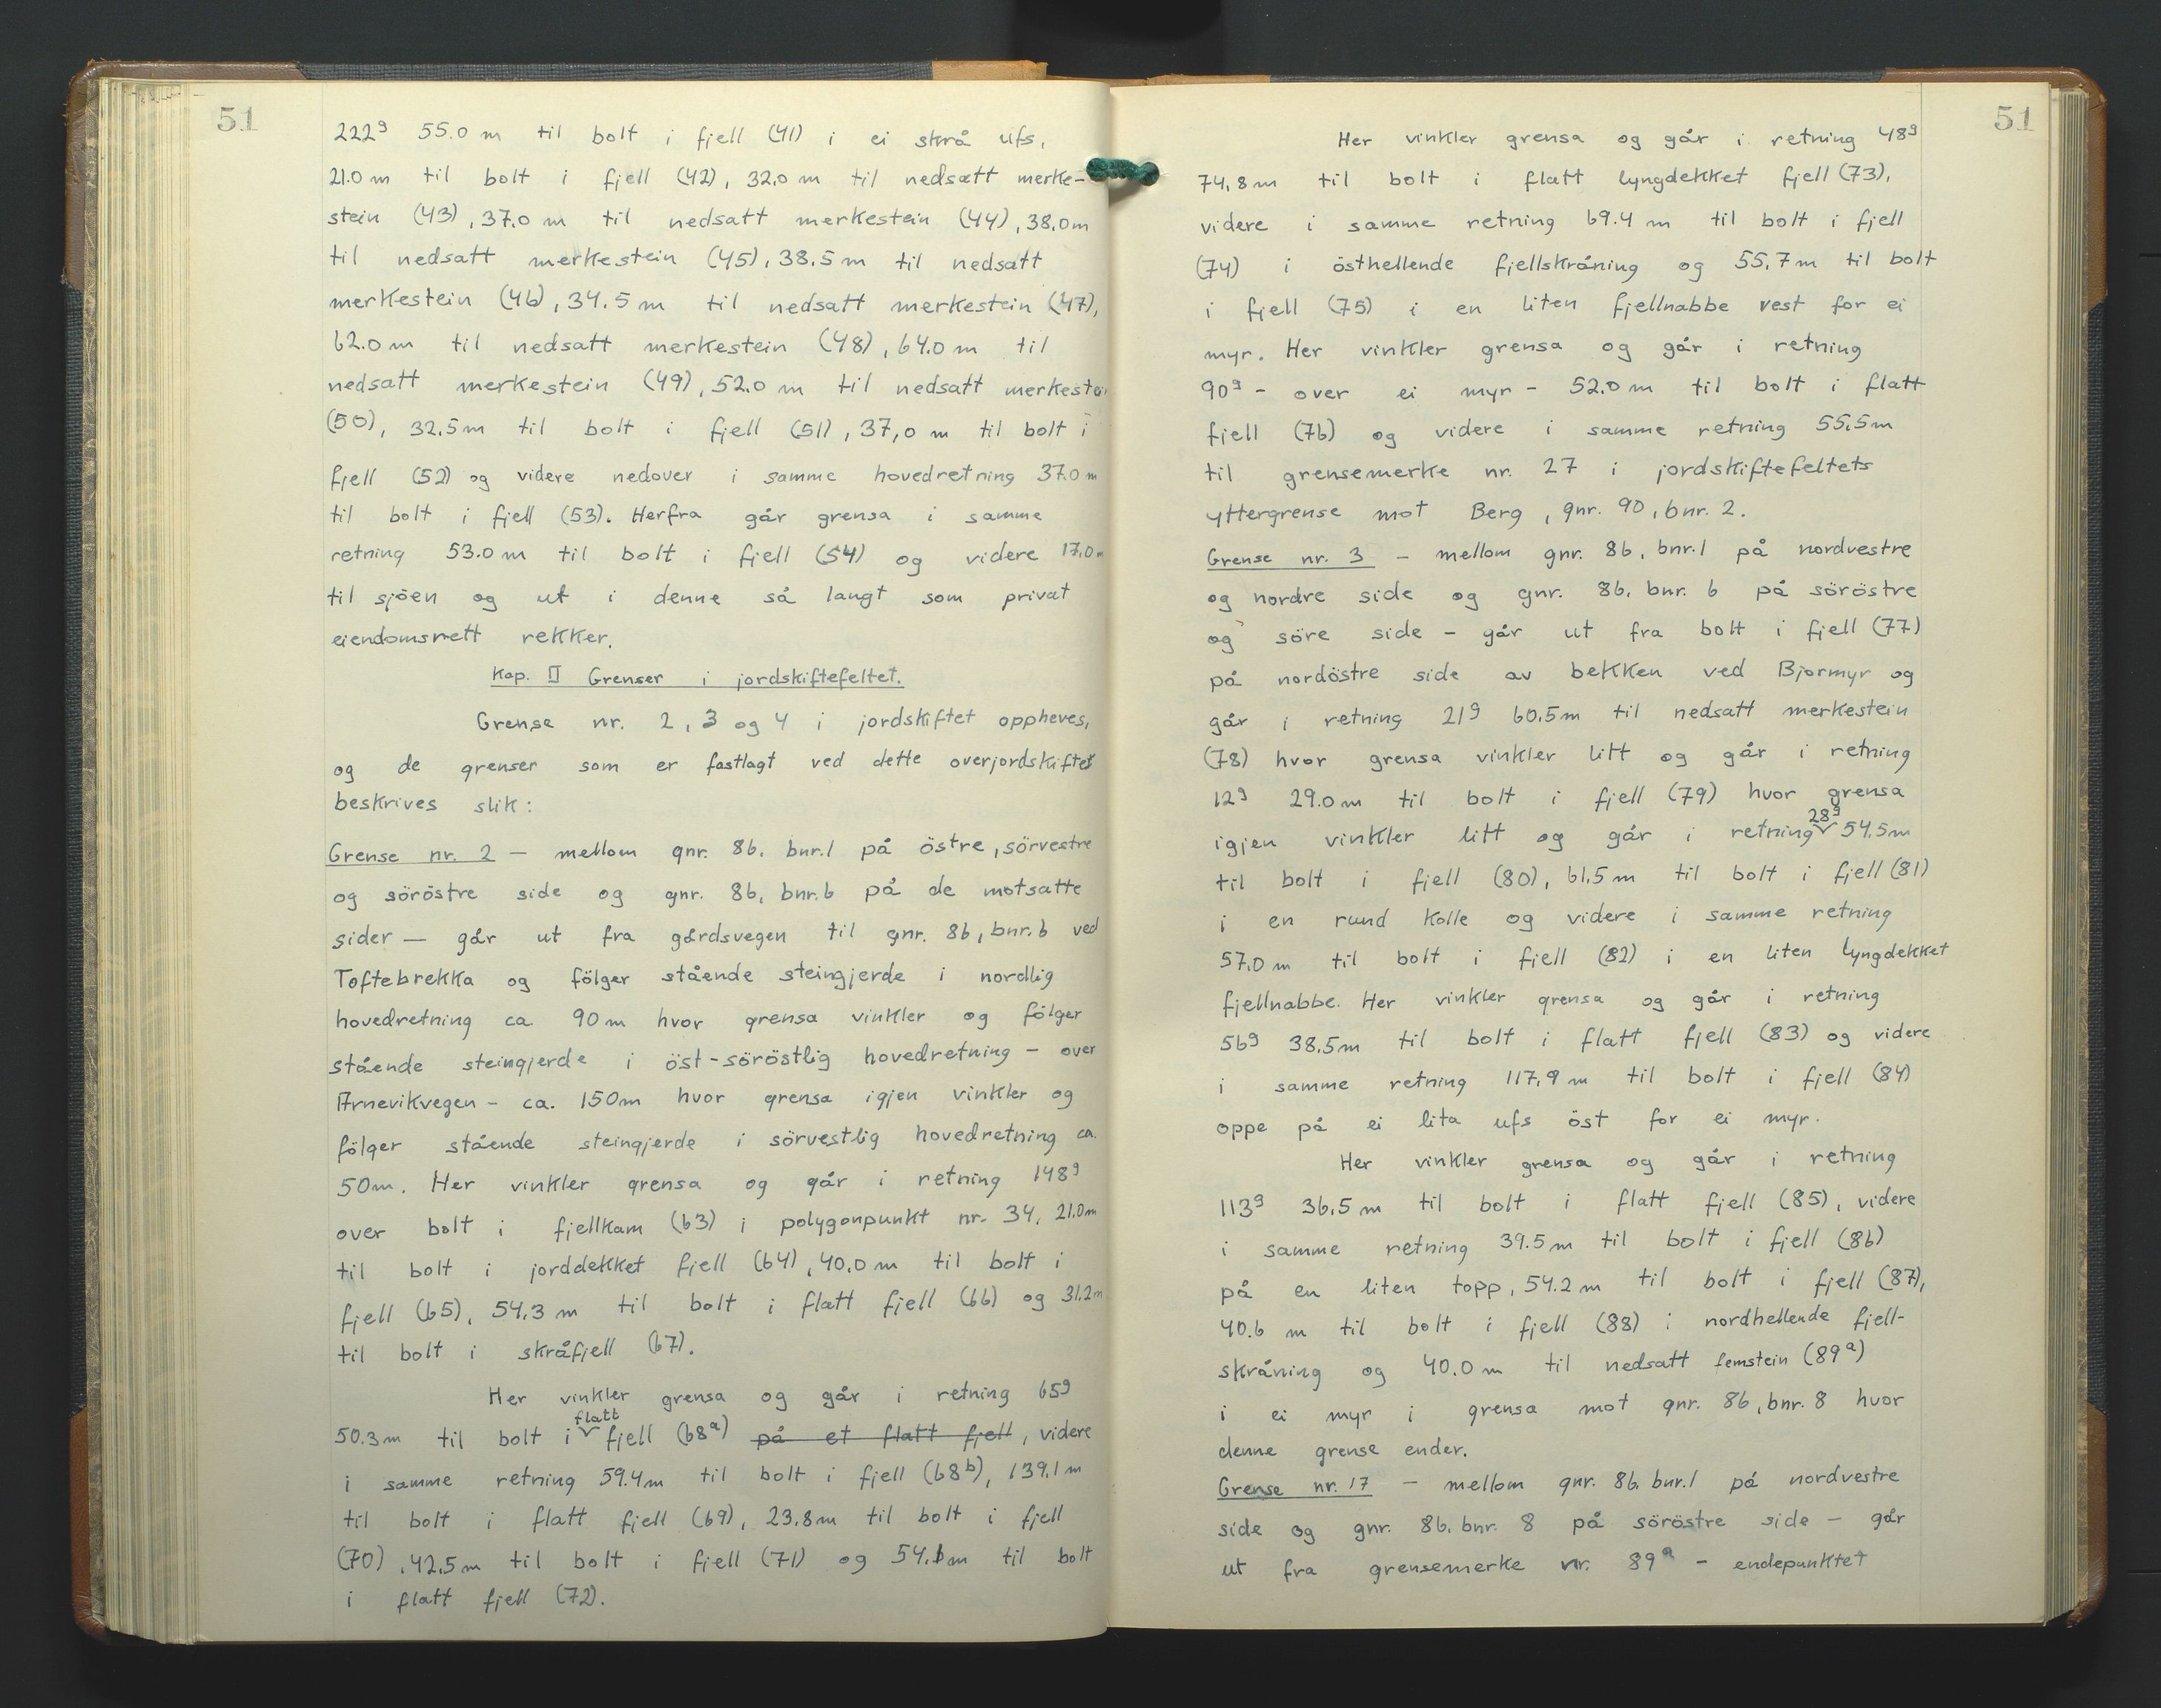 51
222g 55.0 m til bolt i fjell (41) i ei skrå ufs,
21.0 m til bolt i fjell (42), 32.0 m til nedsatt merke-
stein (43), 37.0 m til nedsatt merkestein (44), 38.0 m
til nedsatt merkestein (45), 38.5 m til nedsatt
merkestein (46), 34.5 m til nedsatt merkestein (47),
62.0 m til nedsatt merkestein (48), 64.0 m til
nedsatt merkestein (49), 52.0 m til nedsatt merkestei
(50), 32.5 m til bolt i fjell (51), 37,0 m til bolt i
fjell (52) og videre nedover i samme hovedretning 37.0 m
til bolt i fjell (53). Herfra går grensa i samme
retning 53.0 m til bolt i fjell (54) og videre 17.0 m
til sjöen og ut i denne så langt som privat
eiendomsrett rekker.
Kap. II Grenser i jordskiftefeltet.
Grense nr. 2, 3 og 4 i jordskiftet oppheves,
og de grenser som er fastlagt ved dette overjordskiftet
beskrives slik:
Grense nr. 2 — mellom gnr. 86, bnr. 1 på östre, sörvestre
og söröstre side og gnr. 86, bnr. 6 på de motsatte
sider — går ut fra gårdsvegen til gnr. 86, bnr. 6 ved
Toftebrekka og fölger stående steingjerde i nordlig
hovedretning ca 90 m hvor grensa vinkler og fölger
stående steingjerde i öst-söröstlig hovedretning - over
Arnevikvegen - ca. 150 m hvor grensa igjen vinkler og
fölger stående steingjerde i sörvestlig hovedretning ca.
50 m. Her vinkler grensa og går i retning 148g
over bolt i fjellkam (63) i polygonpunkt nr. 34, 21.0 m
til bolt i jorddekket fjell (64), 40.0 m til bolt i
fjell (65), 54.3 m til bolt i flatt fjell (66) og 31.2 m
til bolt i skråfjell (67).
Her vinkler grensa og går i retning 65g
50.3 m til bolt i flatt fjell (68a) på et flatt fjell, videre
i samme retning 59.4 m til bolt i fjell (68b), 139.1 m
til bolt i flatt fjell (69), 23.8 m til bolt i fjell
(70), 42.5 m til bolt i fjell (71) og 54.6 m til bolt
i flatt fjell (72).
51
Her vinkler grensa og går i retning 48g
74.8 m til bolt i flatt lyngdekket fjell (73),
videre i samme retning 69.4 m til bolt i fjell
(74) i östhellende fjellskråning og 55.7 m til bolt
i fjell (75) i en liten fjellnabbe vest for ei
myr. Her vinkler grensa og går i retning
90g - over ei myr - 52.0 m til bolt i flatt
fjell (76) og videre i samme retning 55.5 m
til grensemerke nr. 27 i jordskiftefeltets
yttergrense mot Berg, gnr. 90, bnr. 2.
Grense nr. 3 — mellom gnr. 86, bnr. 1 på nordvestre
og nordre side og gnr. 86, bnr. 6 på söröstre
og söre side - går ut fra bolt i fjell (77)
på nordöstre side av bekken ved Bjormyr og
går i retning 21g 60.5 m til nedsatt merkestein
(78) hvor grensa vinkler litt og går i retning
12g 29.0 m til bolt i fjell (79) hvor grensa
igjen vinkler litt og går i retning 28g 54.5 m
til bolt i fjell (80), 61.5 m til bolt i fjell (81)
i en rund kolle og videre i samme retning
57.0 m til bolt i fjell (82) i en liten lyngdekket
fjellnabbe. Her vinkler grensa og går i retning
56g 38.5 m til bolt i flatt fjell (83) og videre
i samme retning 117.9 m til bolt i fjell (84)
oppe på ei lita ufs öst for ei myr.
Her vinkler grensa og går i retning
113g 36.5 m til bolt i flatt fjell (85), videre
i samme retning 39.5 m til bolt i fjell (86)
på en liten topp, 54.2 m til bolt i fjell (87),
40.6 m til bolt i fjell (88) i nordhellende fjell-
skråning og 40.0 m til nedsatt femstein (89a)
i ei myr i grensa mot gnr. 86, bnr. 8 hvor
denne grense ender.
Grense nr. 17 — mellom gnr. 86, bnr. 1 på nordvestre
side og gnr. 86, bnr. 8 på söröstre side — går
ut fra grensemerke nr. 89a - endepunktet